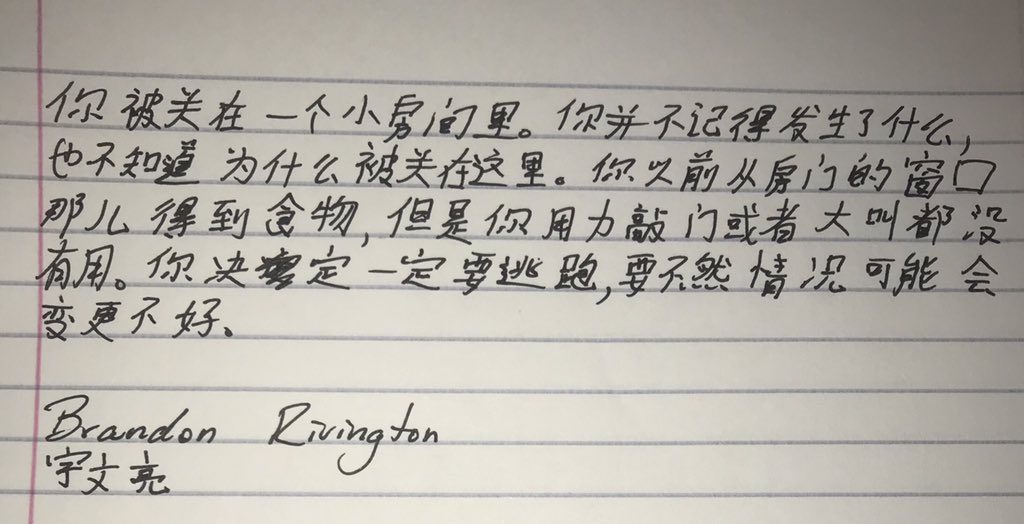 你被关在一个小房间里。你并不记得发生了什么,
也不知道为什么被关在这里。你以前从房门的窗口
那儿得到食物,但是你用力敲门或者大叫都没
有用。你决定一定要逃跑,要不然情况可能会
变更不好。
Brandon Rivington
宇文亮